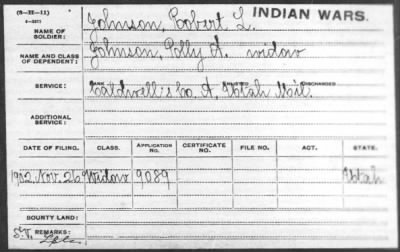 (6-3E-11)
INDIAN WARS.
NAME OF SOLDIER: Johnson, Robert L.
NAME AND CLASS OF DEPENDENT: Johnson, Polly A. widow
SERVICE: RANK ENLISTED DISCHARGED
Caldwell's Co. A, Utah Mil.
ADDITIONAL SERVICE:
DATE OF FILING. CLASS. APPLICATION No. CERTIFICATE NO. FILE NO. ACT. STATE.
1902. Nov. 26 Widow 9089 Utah
BOUNTY LAND:
REMARKS: